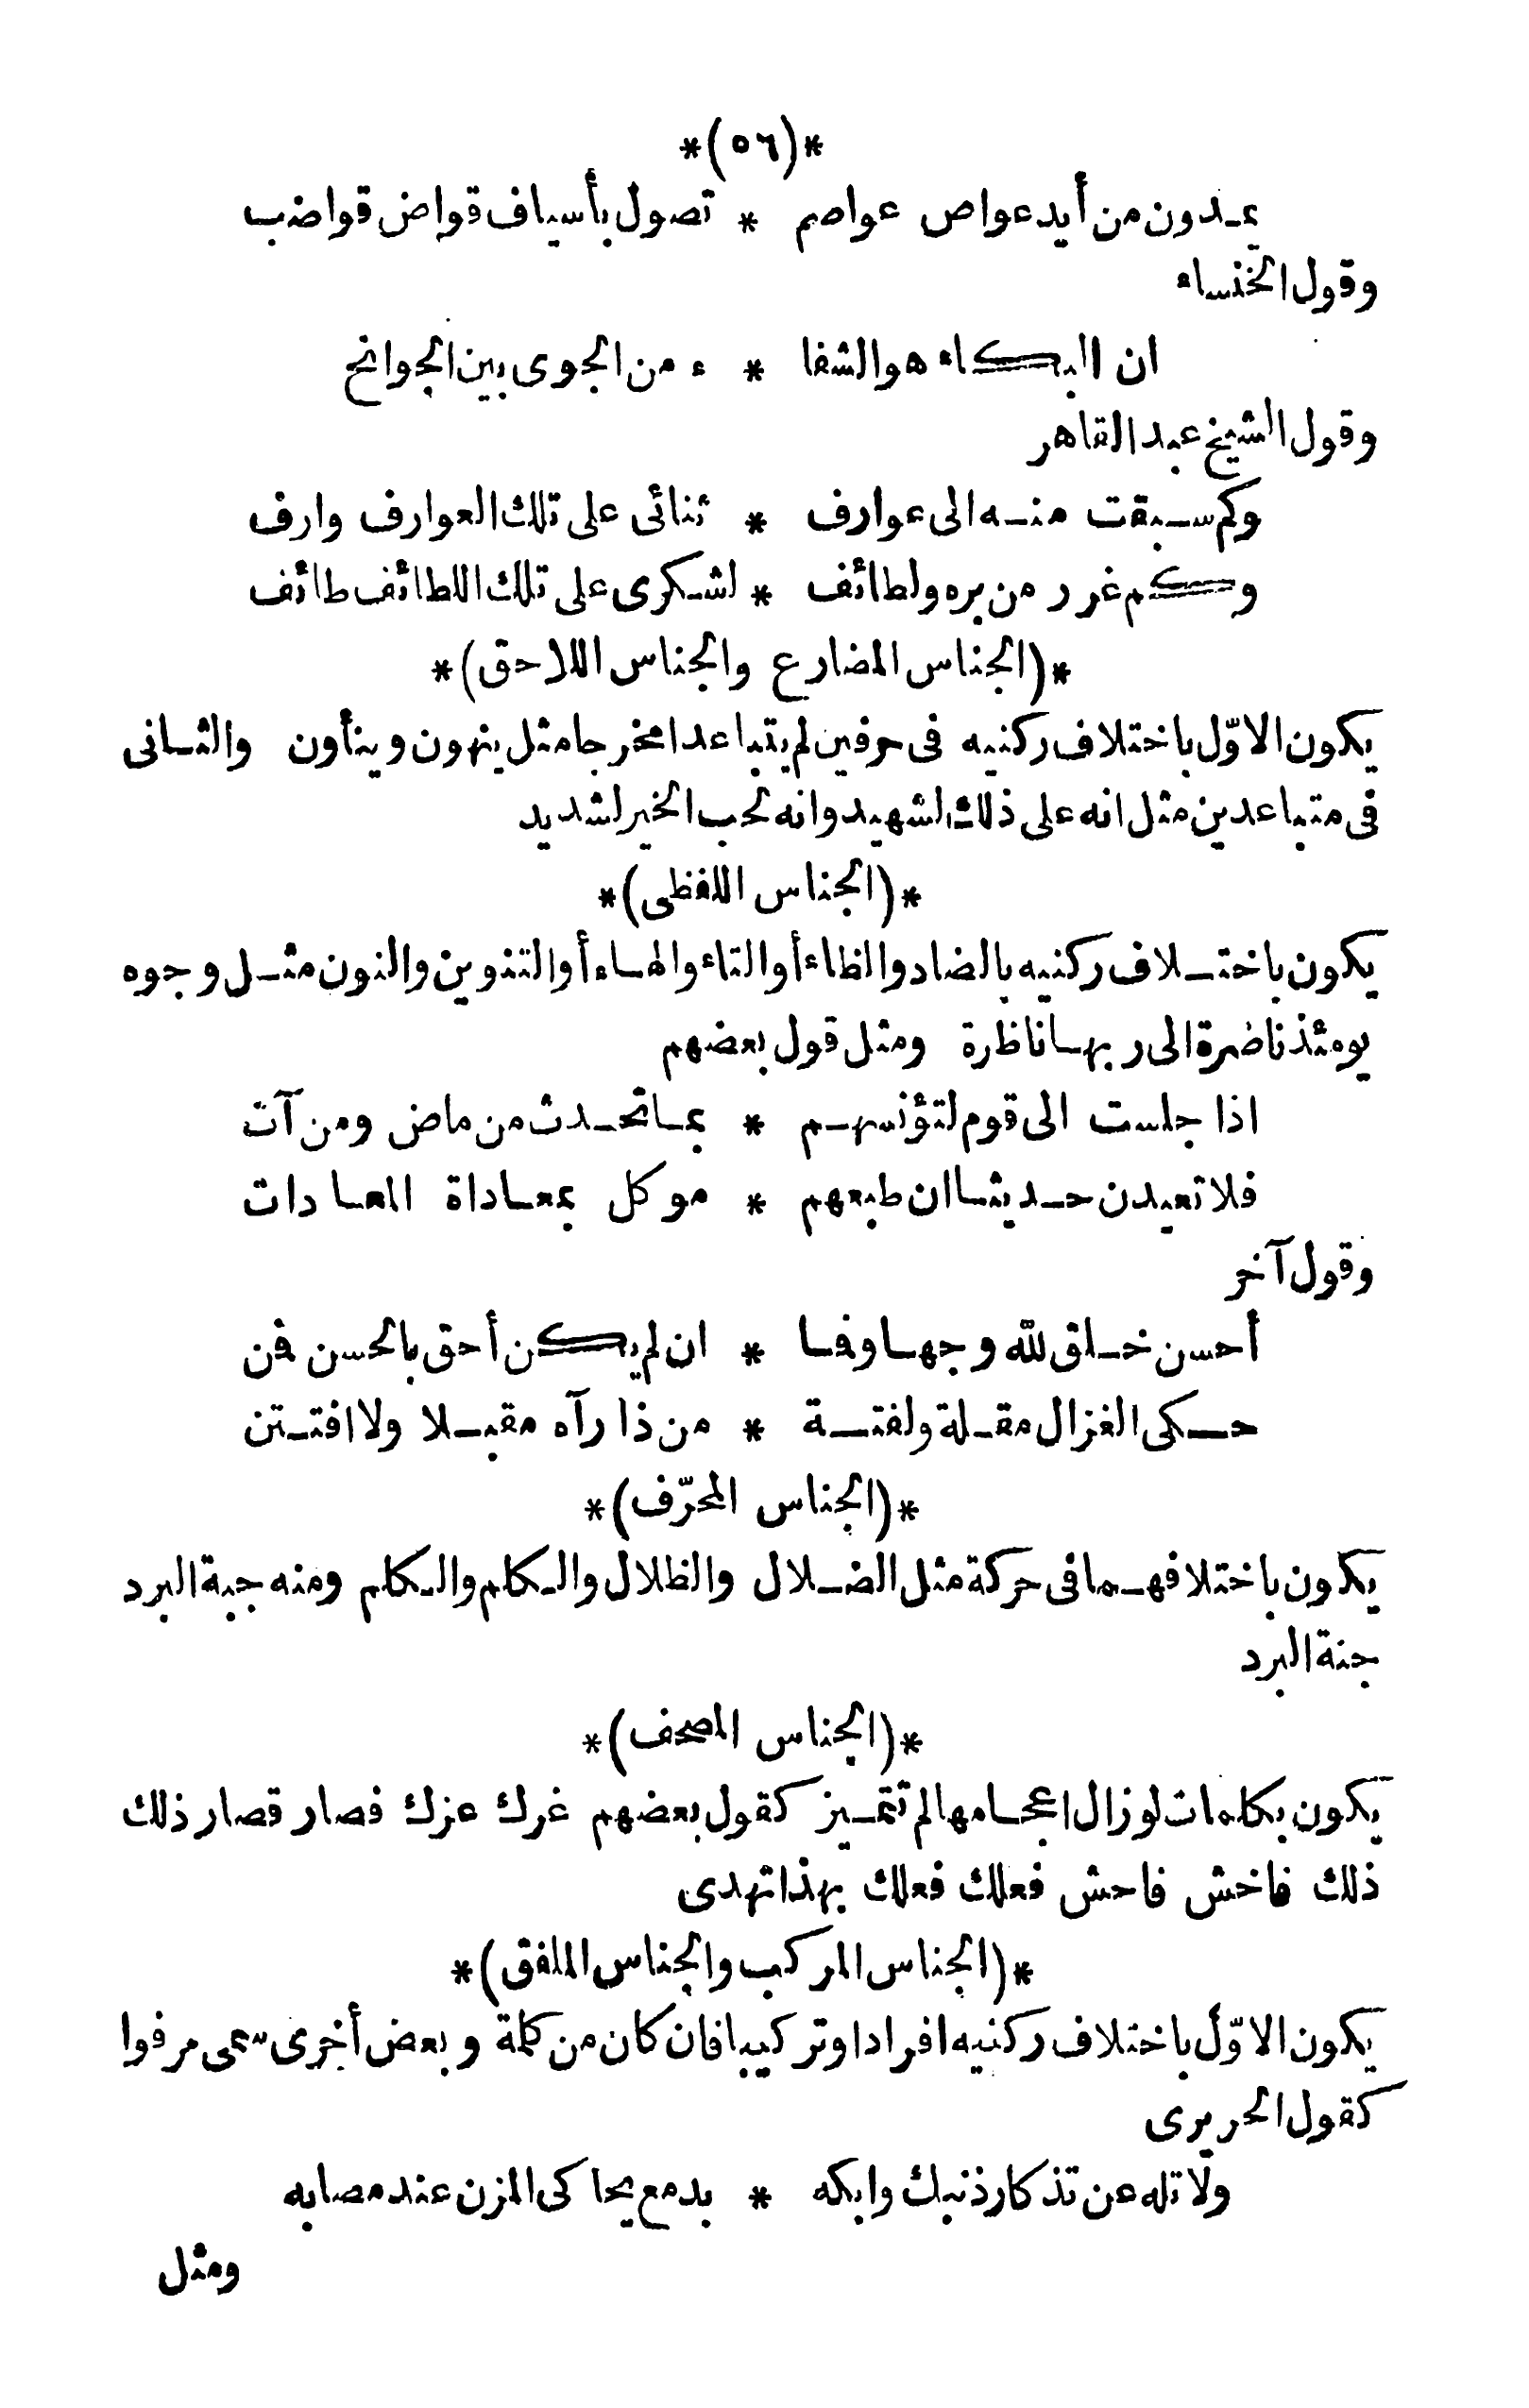 *(٥٦)*
يمدون من أيد عواص عواصم * تصول بأسياف قواض قواضب
وقول الخنساء
ان البكاء هو الشفا * ء من الجوى بين الجوانح
وقول الشيخ عبد القاهر
وكم سبقت منه الى عوارف * ثنائى على تلك العوارف وارف
وكم غرر من بره ولطائف * لشكرى على تلك اللطائف طائف
*(الجناس المضارع والجناس اللاحق)*
يكون الاوّل باختلاف ركنيه فى حرفين لم يتباعدا مخرجا مثل ينهون وينأون والثانى
فى متباعدين مثل انه على ذلك لشهيد وانه لحب الخير لشديد
*(الجناس اللفظى)*
يكون باختلاف ركنيه بالضاد والظاء أو التاء والهاء أو التنوين والنون مثل وجوه
يومئذ ناضرة الى ربها ناظرة ومثل قول بعضهم
اذا جلست الى قوم لتؤنسهم * بما تحدث من ماض ومن آت
فلا تعيدن حديثا ان طبعهم * موكل بمعاداة المعادات
وقول آخر
أحسن خلق الله وجها وفما * ان لم يكن أحق بالحسن فمن
حكى الغزال مقلة ولفتة * من ذا رآه مقبلا ولا افتتن
*(الجناس المحرّف)*
يكون باختلافهما فى حركة مثل الضلال والظلال والكلم والكلم ومنه جبة البرد
جنة البرد
*(الجناس المصحف)*
يكون بكلمات لو زال اعجامها لم تتميز كقول بعضهم غرك عزك فصار قصار ذلك
ذلك فاخش فاحش فعلك فعلك بهذا تهدى
*(الجناس المركب والجناس الملفق)*
يكون الاوّل باختلاف ركنيه افرادا وتركيبا فان كان من كلمة وبعض أخرى سمى مرفوا
كقول الحريرى
ولا تله عن تذكار ذنبك وابكه * بدمع يحاكى المزن عند مصابه
ومثل